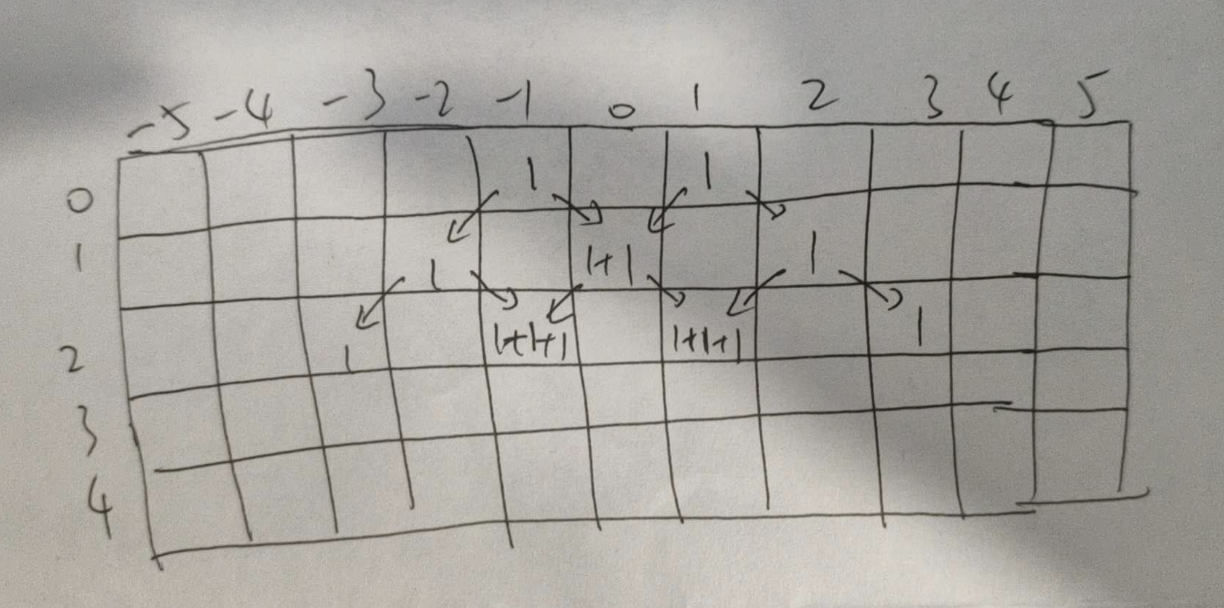 -5 -4 -3 -2 -1 0 1 2 3 4 5
0 1 1
1 1 1+1 1
2 1 1+1+1 1+1+1 1
3
4